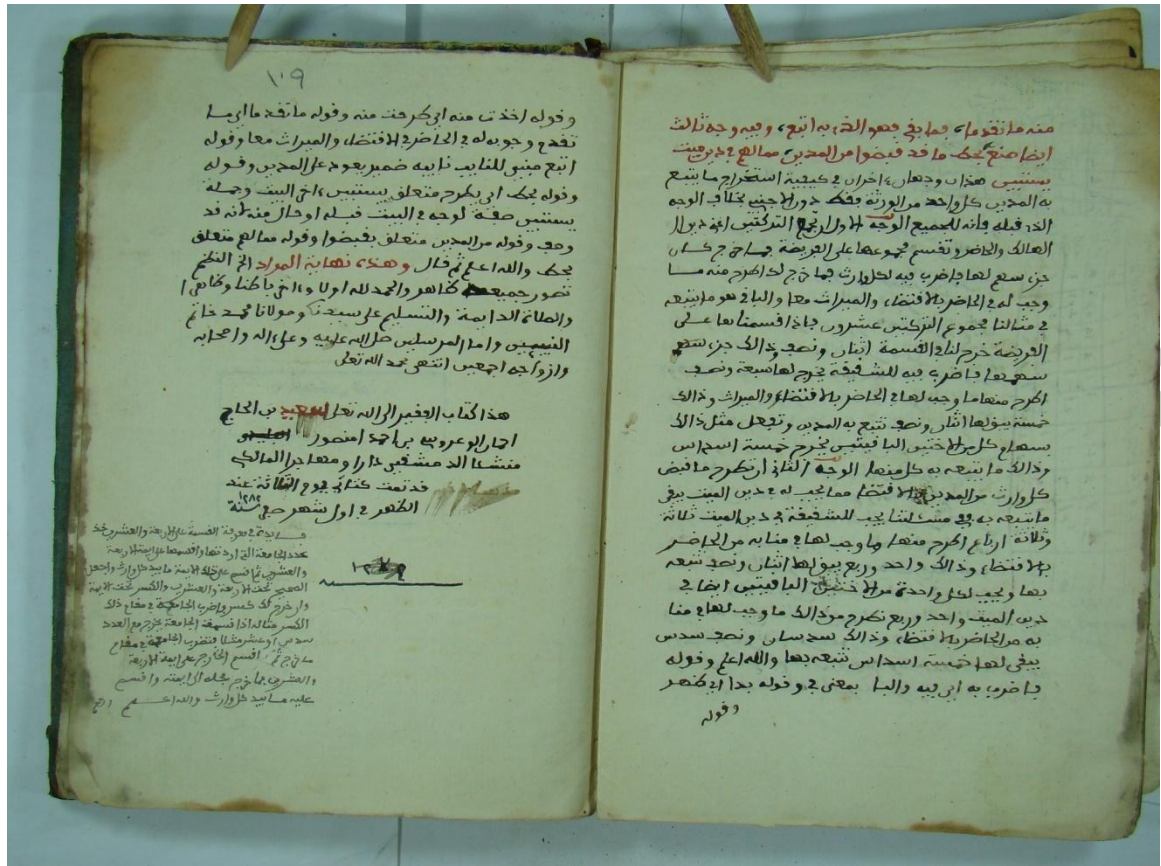 منه ما تقدما، فما بقي فهو الذي به اتبع، وفيه وجه ثالث
ايضا صنع يحط ما قد قبضوا من المدين، ممالهم في دين ميت
يستبين هذان وجهان اخران في كيفية استخراج ما يتبع
به المدين كل واحد من الورثة فقط دون الاجنبي بخلاف الوجه
الذي قبله فانه للجميع الوجه الاول ان تجمع التركتين اعني دين
الهالك والحاضر وتقسم مجموعها على الفريضة فما خرج كان
جزء سهم لها فاضرب فيه لكل وارث فما خرج لك اطرح منه ما
وجب له في الحاضر بالاقتضاء والميراث معا والباقي هو ما يتبعه
في مثالنا مجموع التركتين عشرون فاذا قسمناها على
الفريضة خرج لنا في القسمة اثنان ونصف وذالك جزء سهم
سهمها فاضرب فيه للشقيقة يخرج لها سبعة ونصف
اطرح منها ما وجب لها في الحاضر بالاقتضاء والميراث وذالك
خمسة يبق لها اثنان ونصف تتبع به المدين وتفعل مثل ذالك
بسهام كل من الاختين الباقيتين يخرج خمسة اسداس
وذالك ما يتبعه به كل منهما الوجه الثاني ان تطرح ما قبض
كل وارث من المدين بالاقتضا مما يجب له في دين الميت يبقى
ما يتبعه به وفي مسئلتنا يجب للشقيقة في دين الميت ثلاثة
وثلاثة ارباع اطرح منها ما وجب لها في منابه من الحاضر
بالاقتضاء وذالك واحد وربع يبق لها اثنان ونصف تتبعه
بها ويجب لكل واحدة من الاختين الباقيتين ايضا في
دين الميت واحد وربع تطرح من ذالك ما وجب لها في منا
به من الحاضر بالاقتضاء وذالك سدسان ونصف سدس
يبقى لها خمسة اسداس تتبعه بها والله اعلم وقوله
فاضرب به اي فيه والبا بمعنى في وقوله بدا اي ظهر
وقوله
١٠٩
وقوله اخذت منه اي طرحت منه وقوله ما تقدما اي ما
تقدم وجوبه له في الحاضر في الاقتضاء والميراث معا وقوله
اتبع مبني للنايب نايبه ضمير يعود على المدين وقوله
وقوله يحط اي يطرح متعلق يستبين اخر البيت وجملة
يستبين صفة لوجه في البيت قبله او حال منه لانه قد
وصف وقوله من المدين متعلق بقبضوا وقوله ممالهم متعلق
يحط والله اعلم ثم قال وهذه نهاية المراد الخ النظم
تصور جميعه ظاهر والحمد لله اولا واخرا باطنا وظاهرا
والصلاة الدايمة والتسليم على سيدنا ومولانا محمد خاتم
النبيين وامام المرسلين صلى الله عليه وعلى اله واصحابه
وازواجه اجمعين انتهى بحمد الله تعلى
هذا كتاب الفقير الى الله تعلى سعيد بن الحاج
بن احمد امنصور
منشئا الدمشقي دارا ومهاجرا المالكي
قد تمت كتابي يوم الثلاثة عند
الظهر في اول شهر صفر سنة ١٢٨٢
١٢٧٩
فايدة في معرفة القسمة على الاربعة والعشرين خذ
عدد الجامعة التي اردتها واقسمها على ايمة الاربعة
والعشرين ثم اقسم على تلك الايمة ما بيد كل وارث واجعل
الصحيح تحت الاربعة والعشرين والكسر تحت الايمة
وان خرج لك كسر فاضرب الجامعة في مقام ذلك
الكسر مثاله اذا قسمت الجامعة يخرج مع العدد
سدس او عشر مثلا فتضرب الجامعة في مقام
ما خرج ثم اقسم الخارج على ايمة الاربعة
والعشرين فما خرج حله الى ايمته واقسم
عليه ما بيد كل وارث والله اعلم اهـ